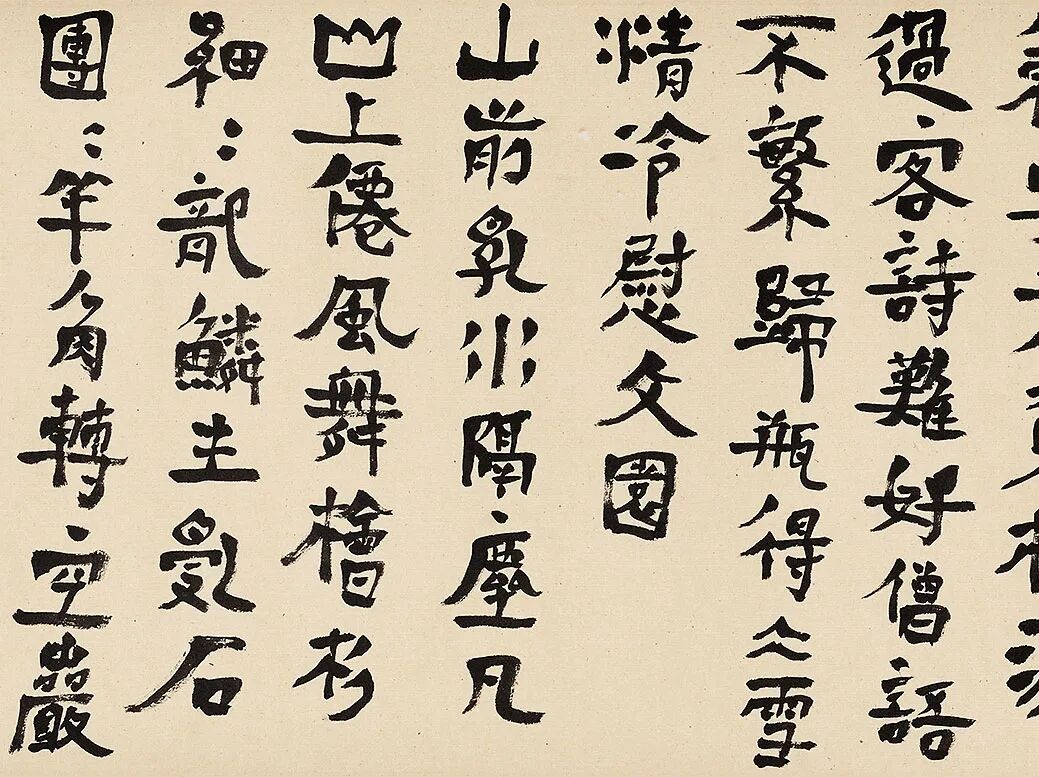 過客詩難好僧語
不繁歸瓶得仌雪
清冷慰文園
山前乳水隔塵凡
山上僊風舞檜杉
細〻龍鱗生亂石
團〻羊角轉空巖